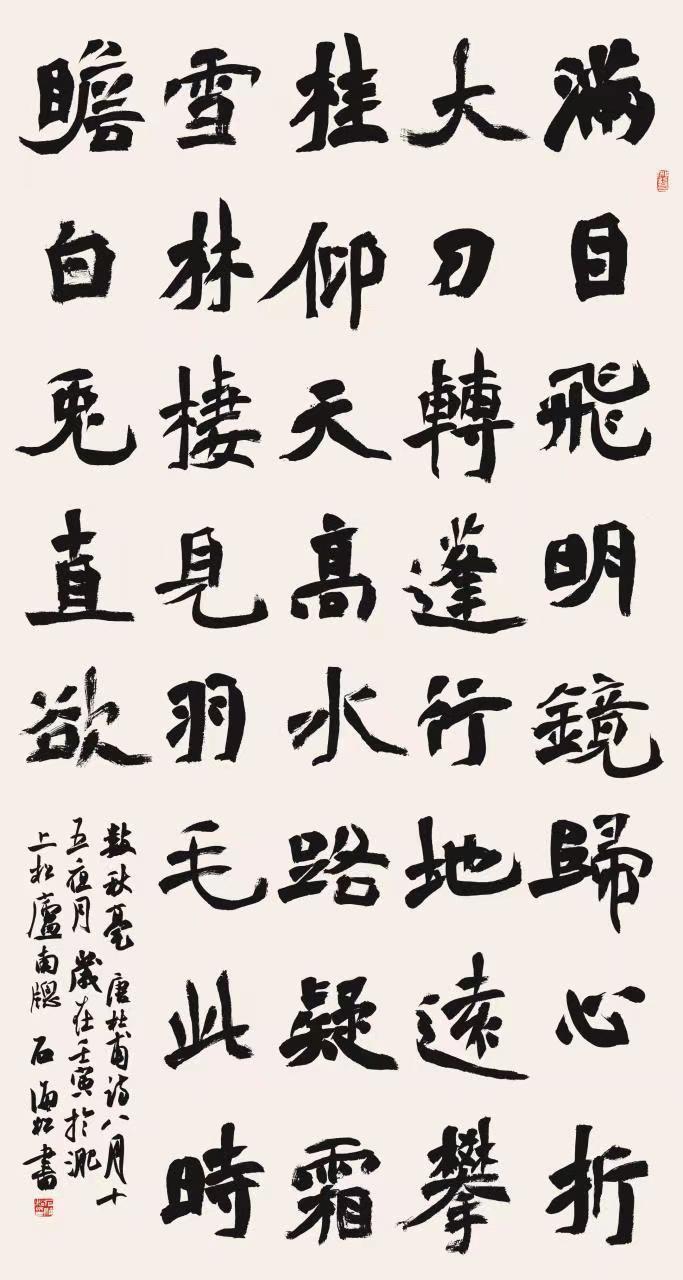 滿目飛明鏡歸心折
大刀轉蓬行地遠攀
桂仰天高水路疑霜
雪林棲見羽毛此時
瞻白兎直欲
數秋毫 唐杜甫詩八月十
五夜月 歲在壬寅於淝
上松廬南牕 石海松書